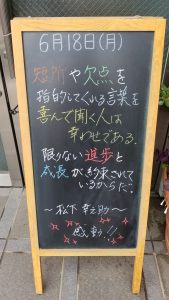 6月18日(月)
短所や欠点を
指摘してくれる言葉を
喜んで聞く人は
幸わせである.
限りない進歩と
成長が約束されて
いるからだ!
〜松下 幸之助〜
感動!!